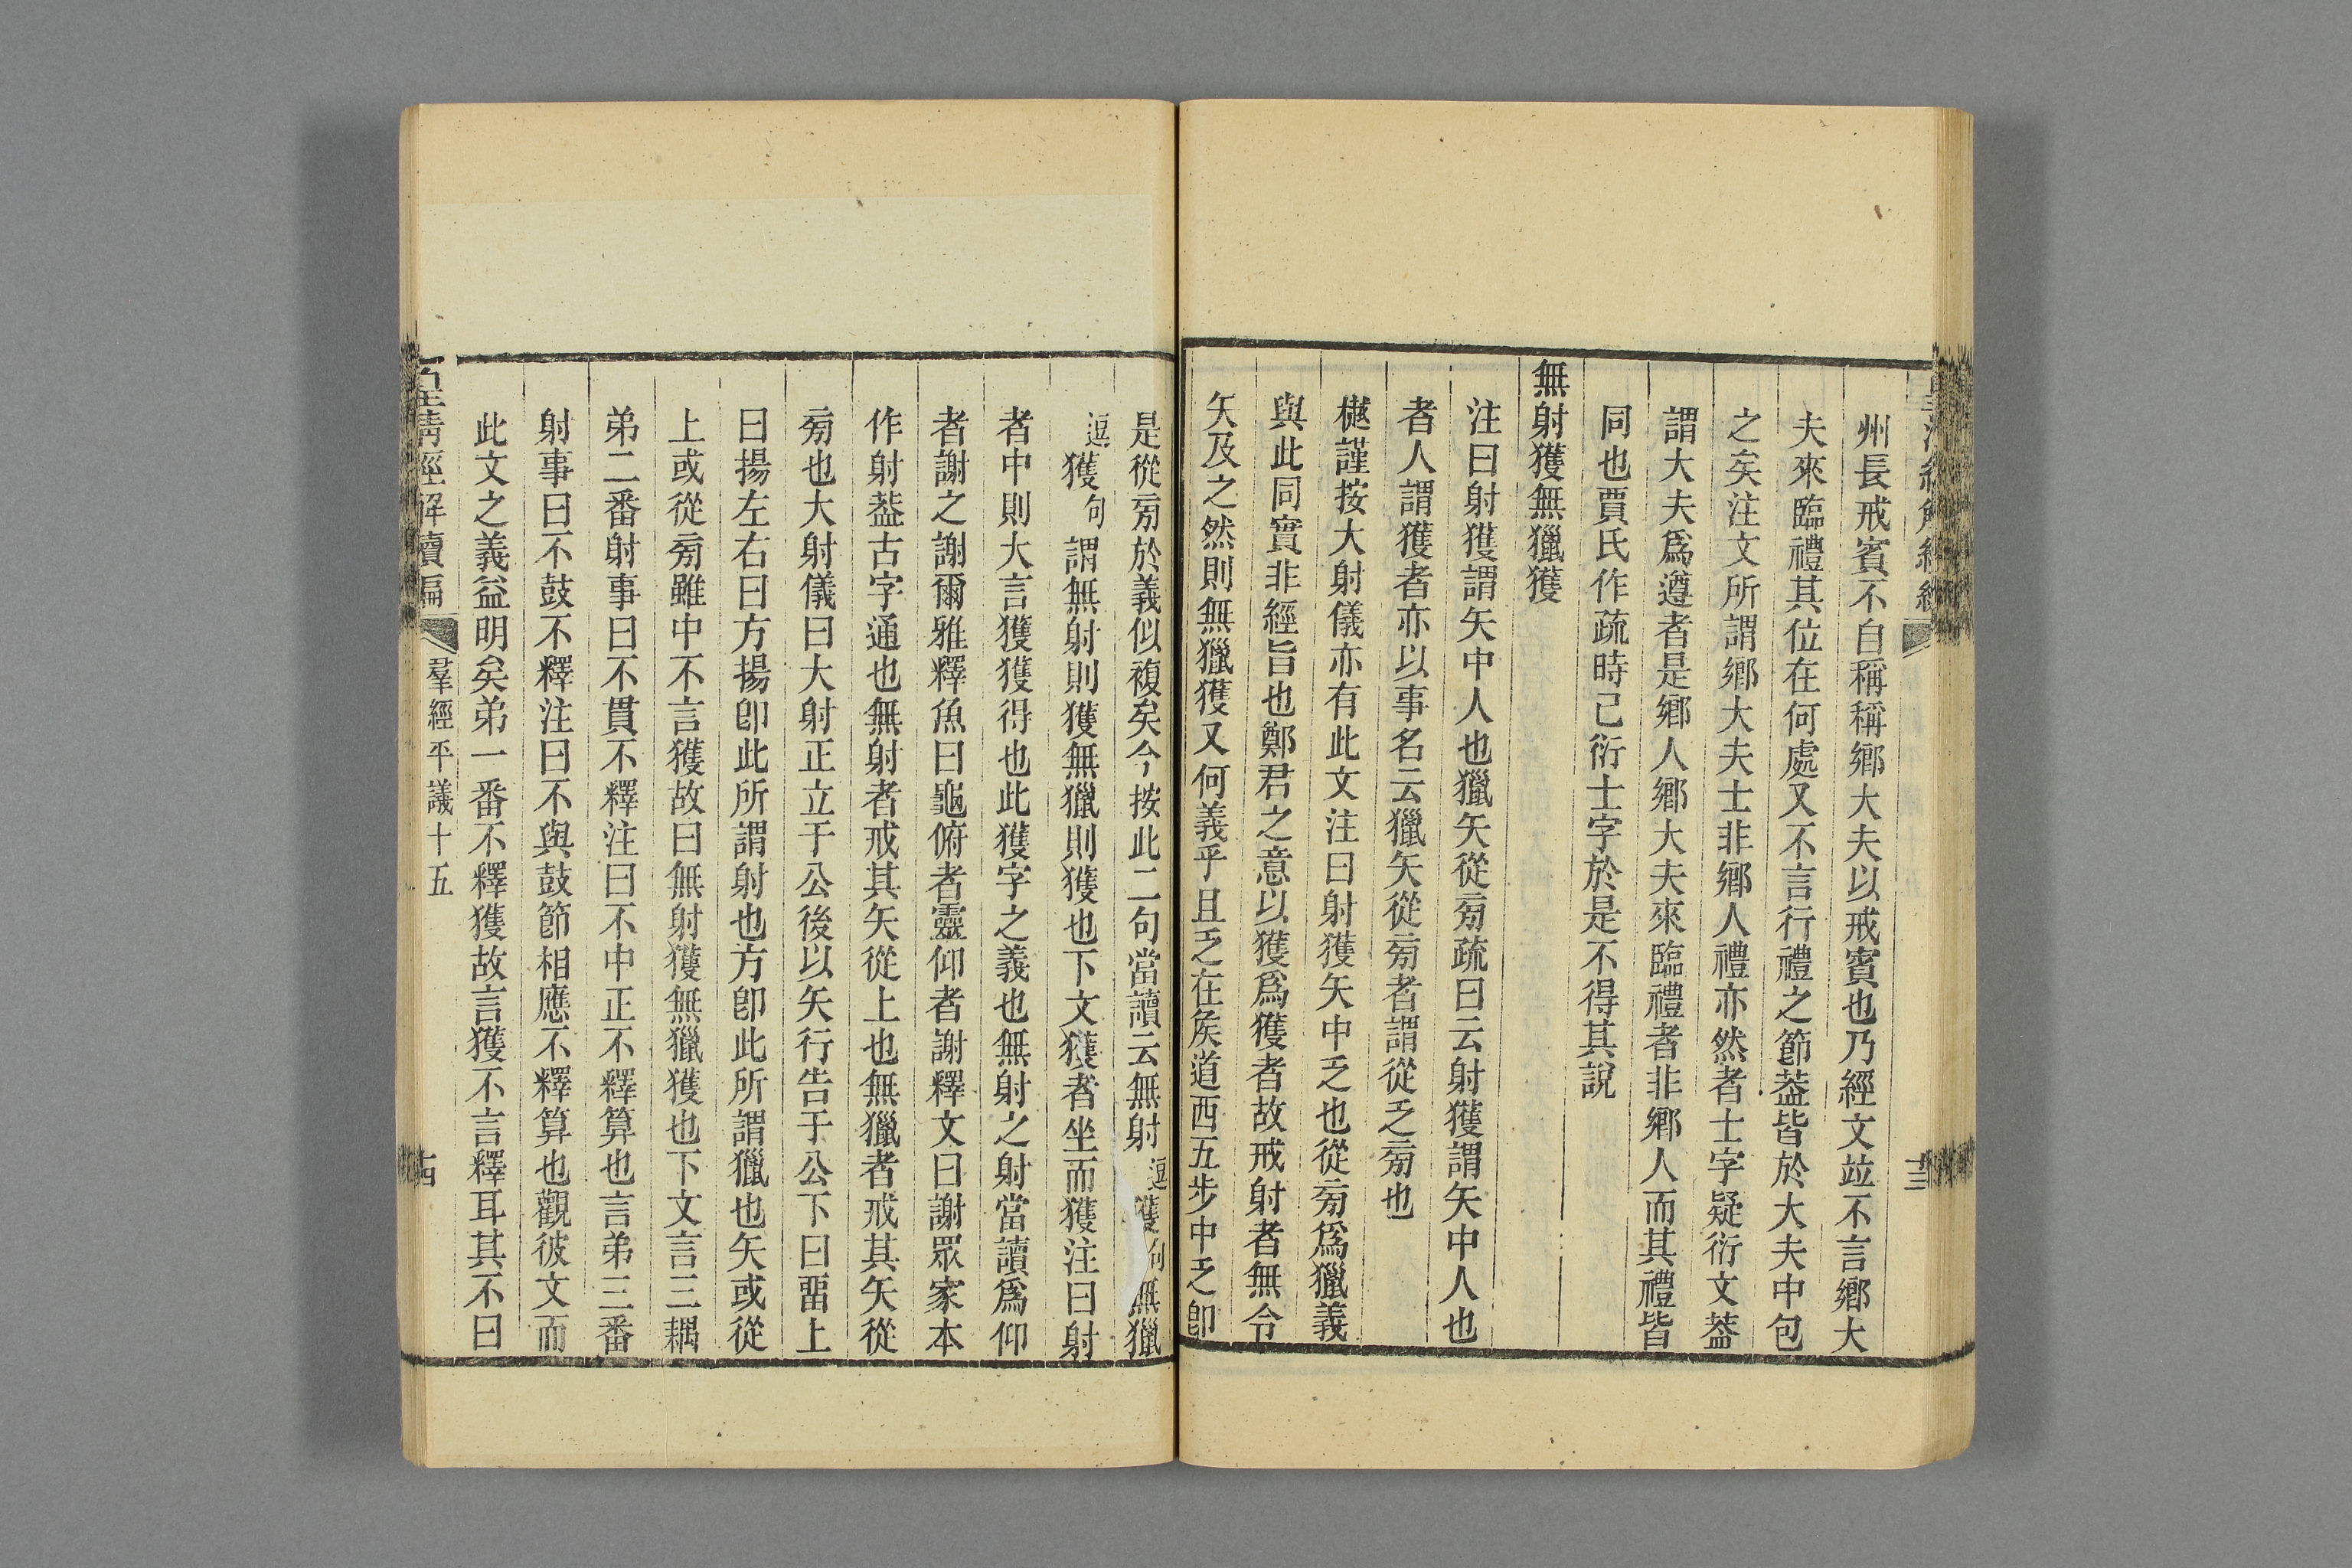 州長戒賓不自稱稱鄉大夫以戒賓也乃經文竝不言鄉大
夫來臨禮其位在何處又不言行禮之節葢皆於大夫中包
之矣注文所謂鄉大夫士非鄉人禮亦然者士字疑衍文葢
謂大夫爲遵者是鄉人鄉大夫來臨禮者非鄉人而其禮皆
同也賈氏作疏時己衍士字於是不得其說
無射獲無獵獲
注曰射獲謂矢中人也獵矢從㫄疏曰云射獲謂矢中人也
者人謂獲者亦以事名云獵矢從㫄者謂從乏㫄也
樾謹按大射儀亦有此文注曰射獲矢中乏也從㫄爲獵義
與此同實非經旨也鄭君之意以獲爲獲者故戒射者無令
矢及之然則無獵獲又何義乎且乏在矦道西五步中乏卽
是從㫄於義似複矣今按此二句當讀云無射逗獲句無獵
逗獲句謂無射則獲無獵則獲也下文獲者坐而獲注曰射
者中則大言獲獲得也此獲字之義也無射之射當讀爲仰
者謝之謝爾雅釋魚曰龜俯者靈仰者謝釋文曰謝眾家本
作射葢古字通也無射者戒其矢從上也無獵者戒其矢從
㫄也大射儀曰大射正立于公後以矢行告于公下曰畱上
曰揚左右曰方揚卽此所謂射也方卽此所謂獵也矢或從
上或從㫄雖中不言獲故曰無射獲無獵獲也下文言三耦
弟二番射事曰不貫不釋注曰不中正不釋算也言弟三番
射事曰不鼓不釋注曰不與鼓節相應不釋算也觀彼文而
此文之義益明矣弟一番不釋獲故言獲不言釋耳其不曰
皇清經解續編
羣經平議十五
十四